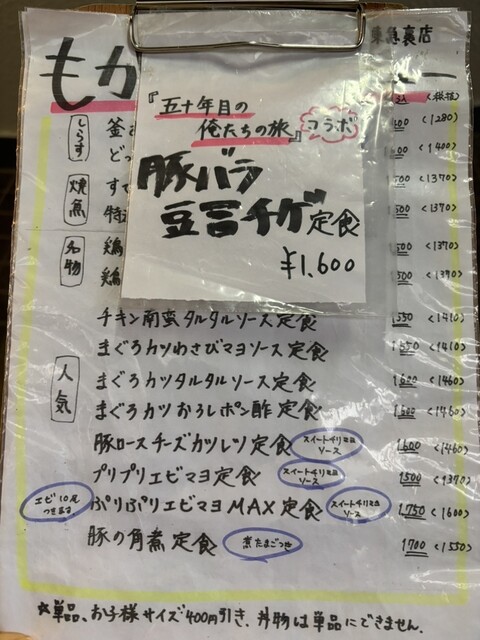 東急裏店
もか
『五十年目の
俺たちの旅』コラボ
豚バラ
豆腐チゲ定食
¥1,600
税込 <税抜>
しらす
釜
<1280>
どっ
<1400>
焼魚
す
<1370>
特
<1370>
名物
鶏
<1370>
鶏
<1370>
人気
チキン南蛮タルタルソース定食 1550 <1410>
まぐろカツわさびマヨソース定食 1550 <1410>
まぐろカツタルタルソース定食 1600 <1460>
まぐろカツおろしポン酢定食 1600 <1460>
豚ロースチーズカツレツ定食 スイートチリマヨソース 1600 <1460>
プリプリエビマヨ定食 スイートチリマヨソース 1500 <1370>
エビ10尾つきます ぷりぷりエビマヨMAX定食 スイートチリマヨソース 1,750 <1600>
豚の角煮定食 煮たまごつき 1700 <1550>
☆単品、お子様サイズ400円引き、丼物は単品にできません。